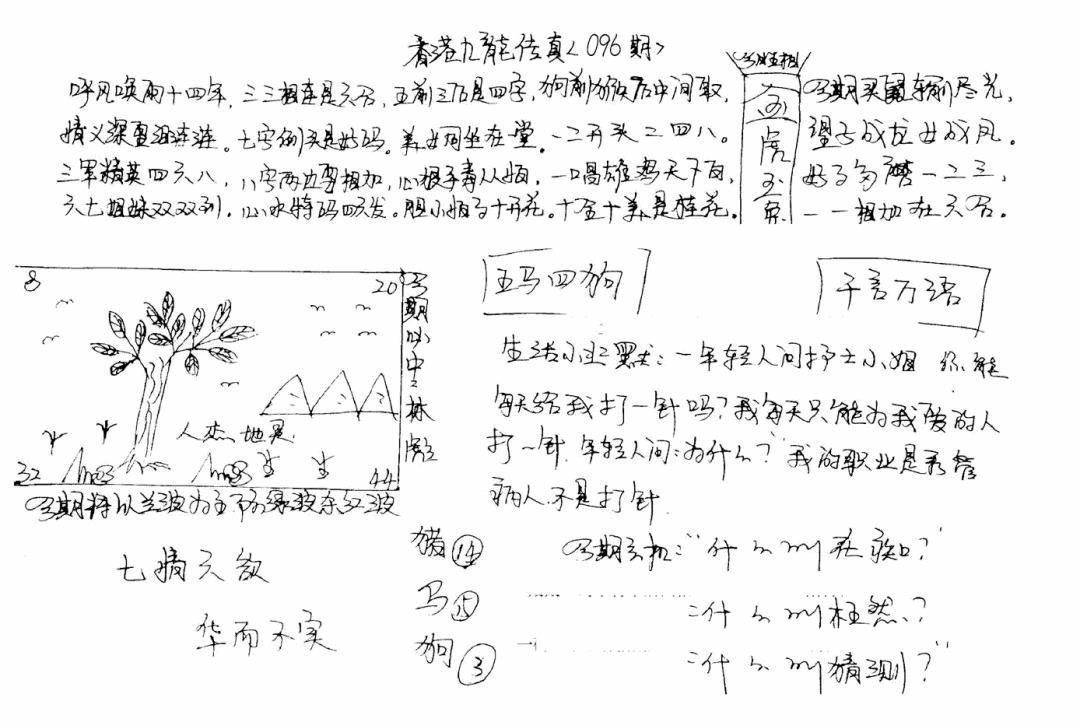 香港九龍传真<096期>
呼风唤雨十四年,三三相连是六合,五前三后是四字,狗前猴后中间取,
情义深重 连连。七字倒头是好码。美女同坐在堂。一二开头二四八。
三军精英四六八,八字两边 相加,心狠手毒从 ,一唱雄鸡天下白,
六七姐妹双双到,心水特码四六发。胆小 马十开花。十全十美是桂花。
今期买 尽光,
望子成龙女成凤。
好了 一二三,
一一相加在六合。
虎
8
20
32
44
人杰地灵
今期以中 林
今期将以兰波为主 绿波 红波
五马四狗
千言万语
生活小幽默:一年轻人问护士小姐 你能
每天给我打一针吗?我每天只能为我爱的人
打一针.年轻人问:为什么?我的职业是看管
病人.不是打针
七情六欲
华而不实
猪 14
马 15
狗 3
今期玄机:"什么叫 ?
:什么叫枉然?
:什么叫猜测?"